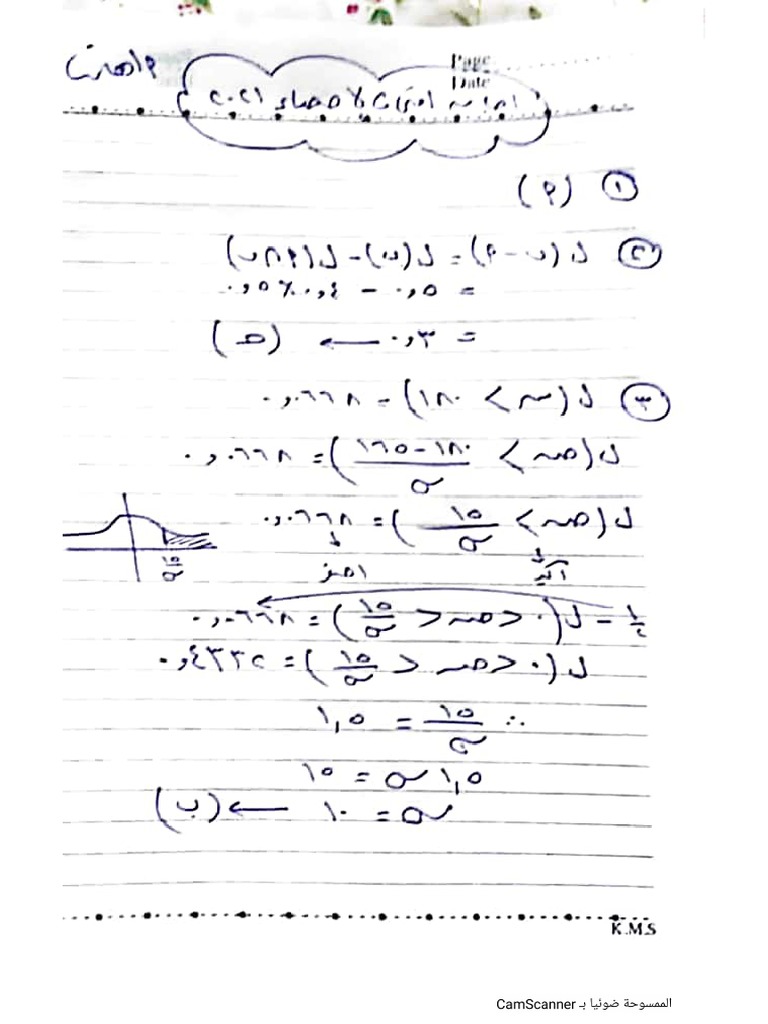 Page
Date
إجابة امتحان الإحصاء ٢٠٢١
① (أ)
② ل(ب - أ) = ل(ب) - ل(أ ∩ ب)
= ٠,٥ - ٠,٤ × ٠,٥
= ٠,٣ ← (حـ)
③ ل(س > ١٨٠) = ٠,٠٦٦٨
ل(ص > (١٨٠ - ١٦٥)/σ) = ٠,٠٦٦٨
ل(ص > ١٥/σ) = ٠,٠٦٦٨
أكبر ↓ أصغر ↓ ١٥/σ
١/٢ - ل(٠ < ص < ١٥/σ) = ٠,٠٦٦٨
ل(٠ < ص < ١٥/σ) = ٠,٤٣٣٢
∴ ١٥/σ = ١,٥
١,٥ σ = ١٥
σ = ١٠ ← (ب)
K.M.S
الممسوحة ضوئيا بـ CamScanner